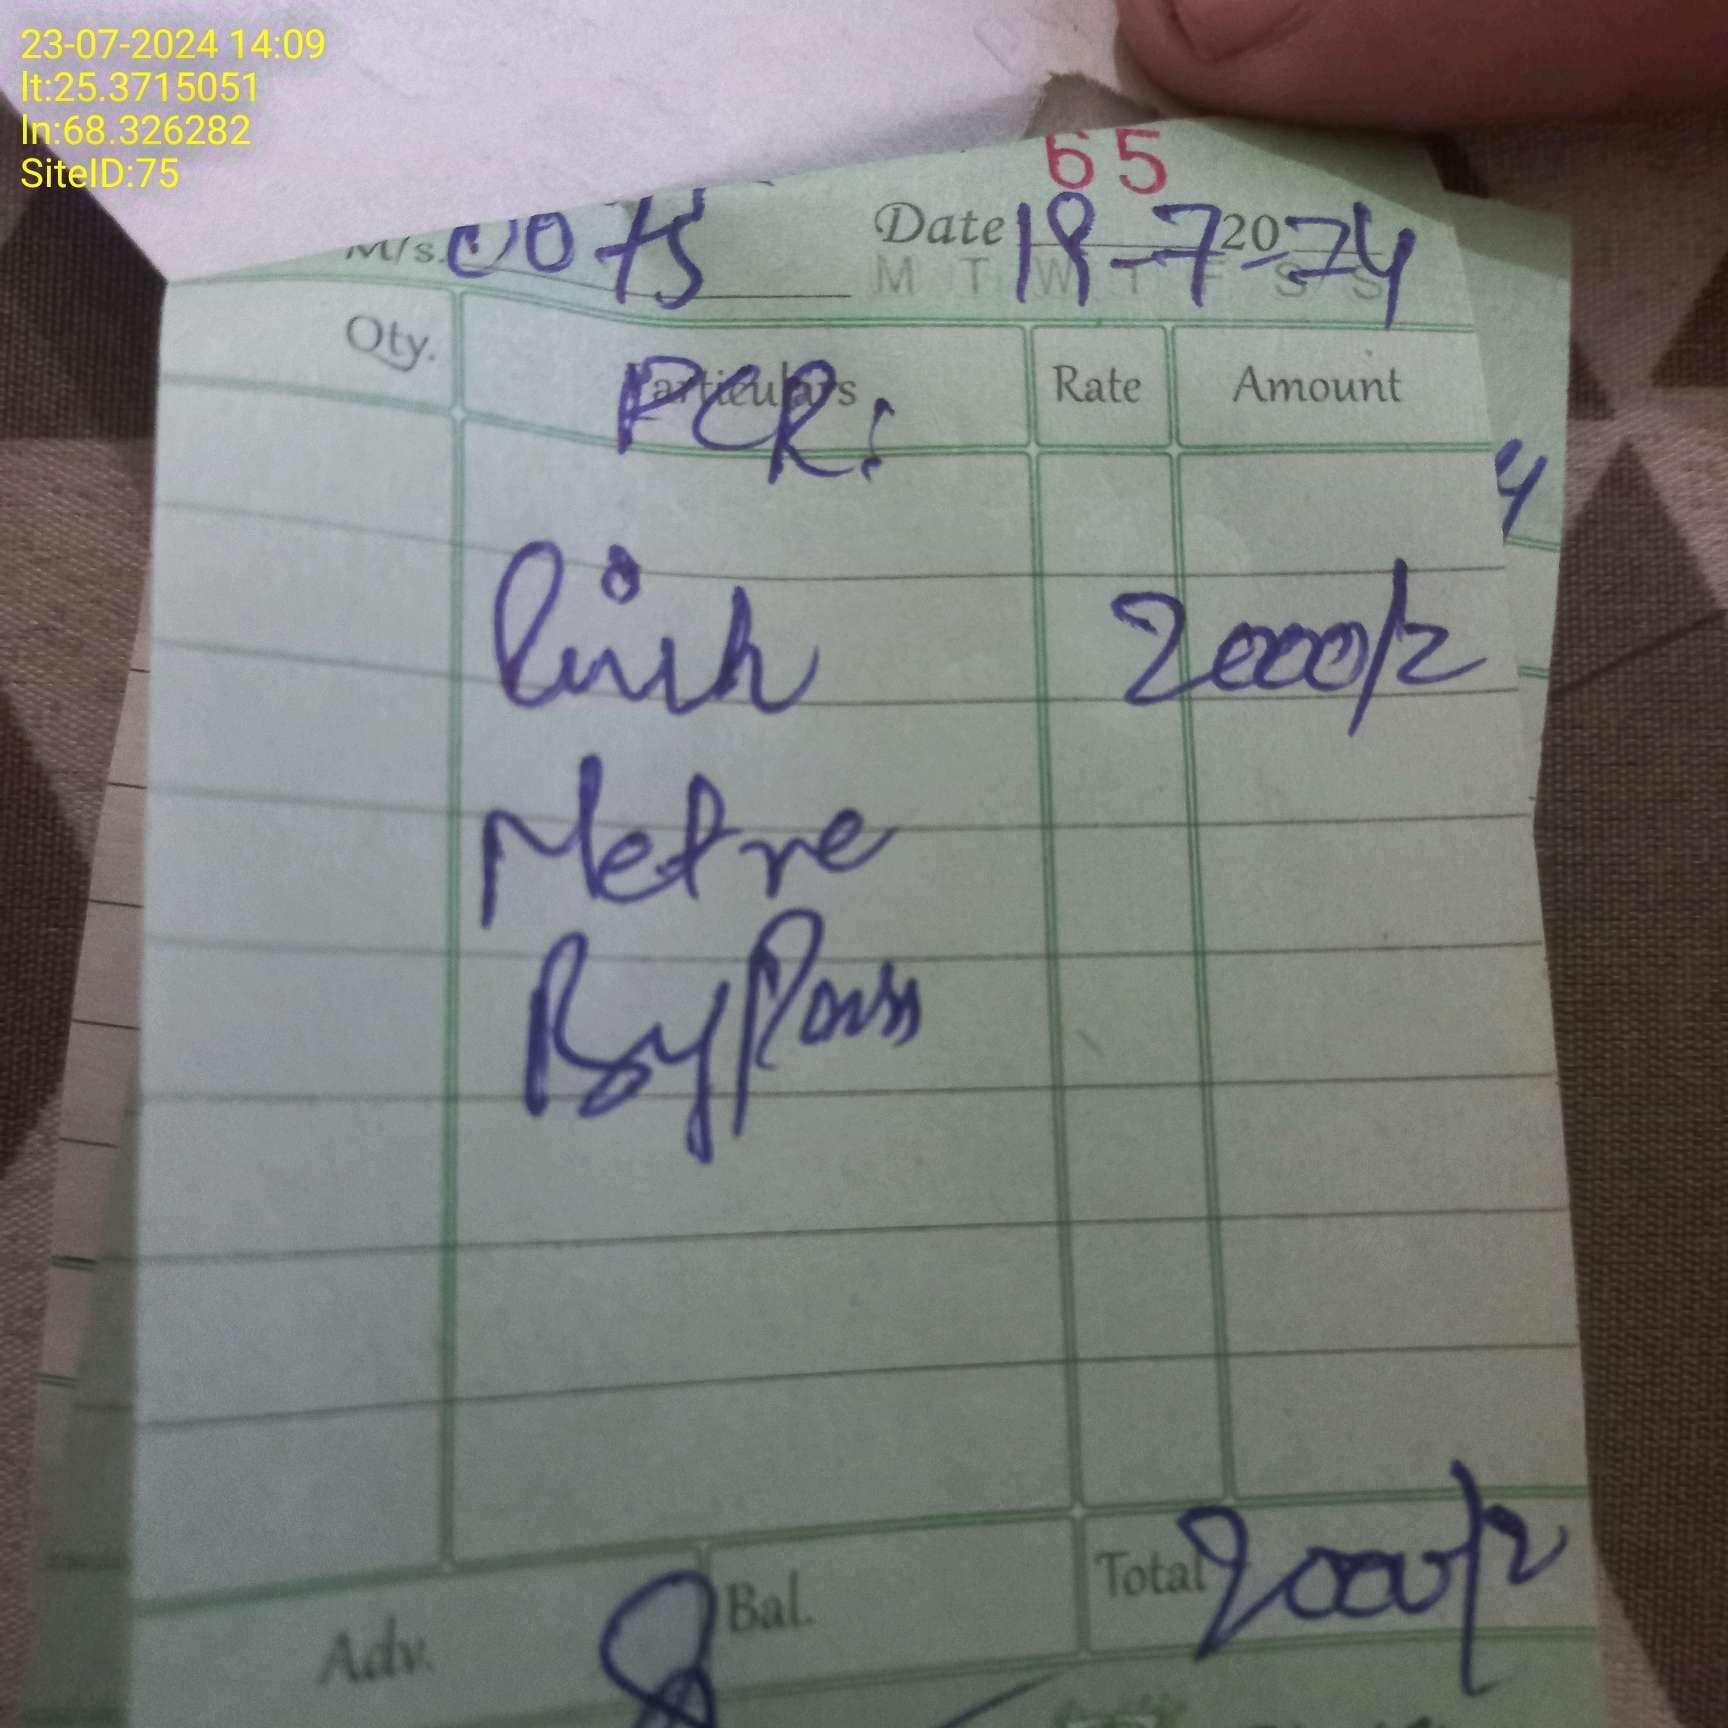 23-07-2024 14:09
lt:25.3715051
ln:68.326282
SiteID:75
65
M/s. 0075 Date 18-7-2024
M T W T F S S
Qty. Particulars Rate Amount
PCR:
Link 2000/=
Metre
ByPass
Adv. Bal. Total 2000/=